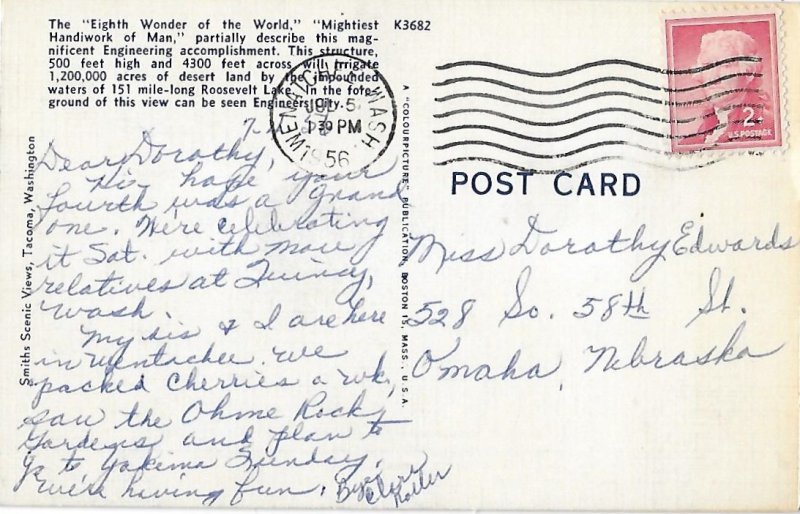 The "Eighth Wonder of the World," "Mightiest
Handiwork of Man," partially describe this mag-
nificent Engineering accomplishment. This structure,
500 feet high and 4300 feet across will irrigate
1,200,000 acres of desert land by the impounded
waters of 151 mile-long Roosevelt Lake. In the fore-
ground of this view can be seen Engineers City.
K3682
WENATCHEE WASH.
JUL 5
1 30 PM
1956
2¢
U.S. POSTAGE
POST CARD
Smiths Scenic Views, Tacoma, Washington
A "COLOURPICTURE" PUBLICATION, BOSTON 15, MASS., U.S.A.
Dear Dorothy,
Hi, hope your
fourth was a grand
one. We're celebrating
it Sat. with more
relatives at Quincy,
Wash.
My sis & I are here
in Wentachee. We
packed cherries a wk,
saw the Ohme Rock
Gardens and plan to
go to Yakima Sunday.
We're having fun. Bye
Miss Dorothy Edwards
528 So. 58th St.
Omaha, Nebraska